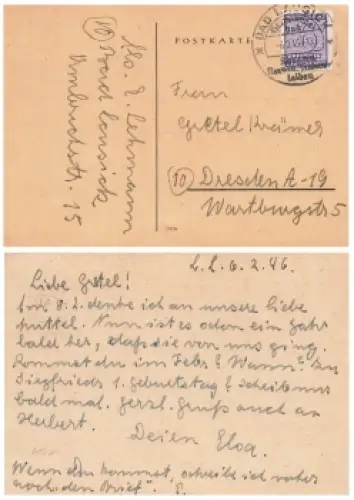 Abs. E. Lehmann
(10) Bad Lausick
Umbruchstr. 15
POSTKARTE
BAD LAUSICK
Herrn
Gretel Krämer
(10) Dresden A-19
Wartburgstr 5
B.L. 6.2.46.
Liebe Gretel!
Am 8.2. denke ich an unsere liebe
Mittel. Nun ist es schon ein Jahr
bald her, daß sie von uns ging.
Kommst du im Febr? Wann? Zu
Siegfrieds 1. Geburtstag? Schreibe uns
bald mal. Herzl. Gruß auch an
Herbert.
Deine Elsa.
Wenn du kommst, schreibe ich vorher
noch den Brief".